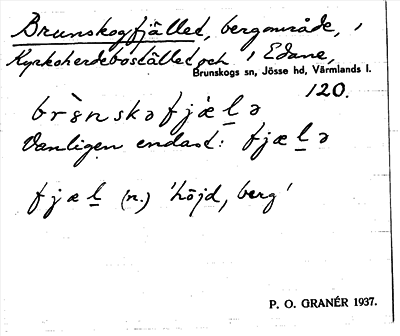 Brunskogfjället, bergområde, i
Kyrkoherdebostället och i Edane,
Brunskogs sn, Jösse hd, Värmlands l.
120.
brɞ̀nskəfjæ̀l̲ə
Vanligen endast: fjæl̲ə
fjæl̲ (n.) 'höjd, berg'
P. O. GRANÉR 1937.